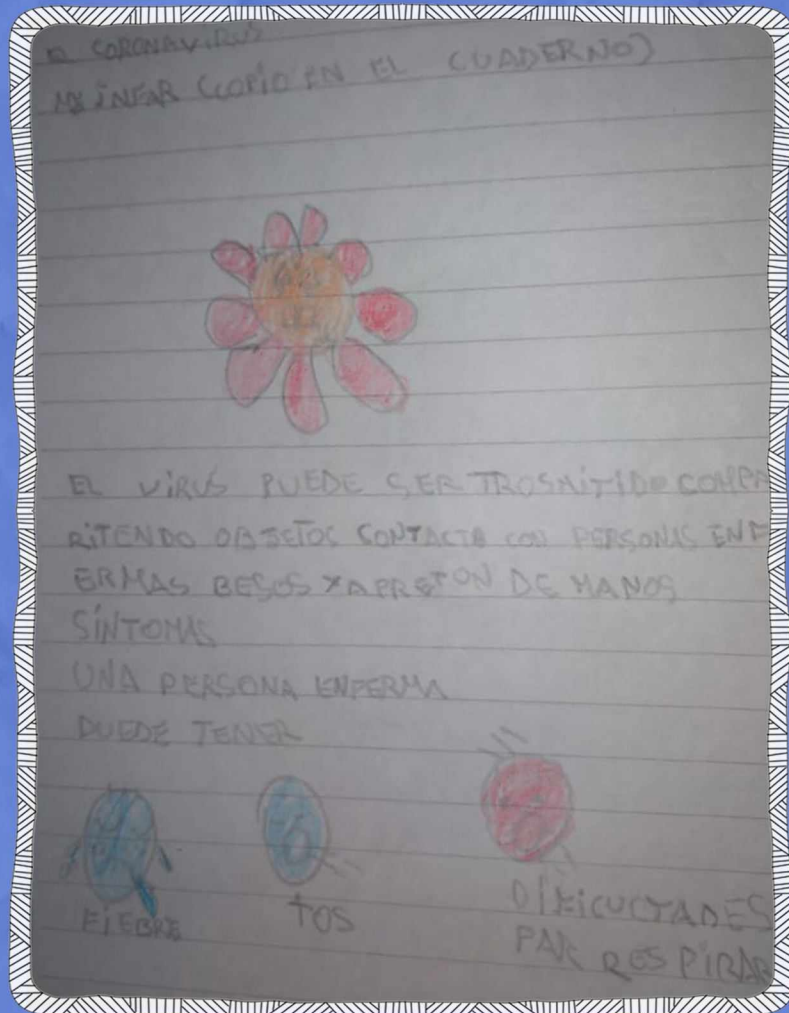 CORONAVIRUS
(COPIO EN EL CUADERNO)
EL VIRUS PUEDE SER TROSMITIDO COMPA
RITENDO OBJETOS CONTACTO CON PERSONAS ENF
ERMAS BESOS Y APRETON DE MANOS
SÍNTOMAS
UNA PERSONA ENFERMA
PUEDE TENER
FIEBRE
TOS
DIFICULTADES
PAR RESPIRAR